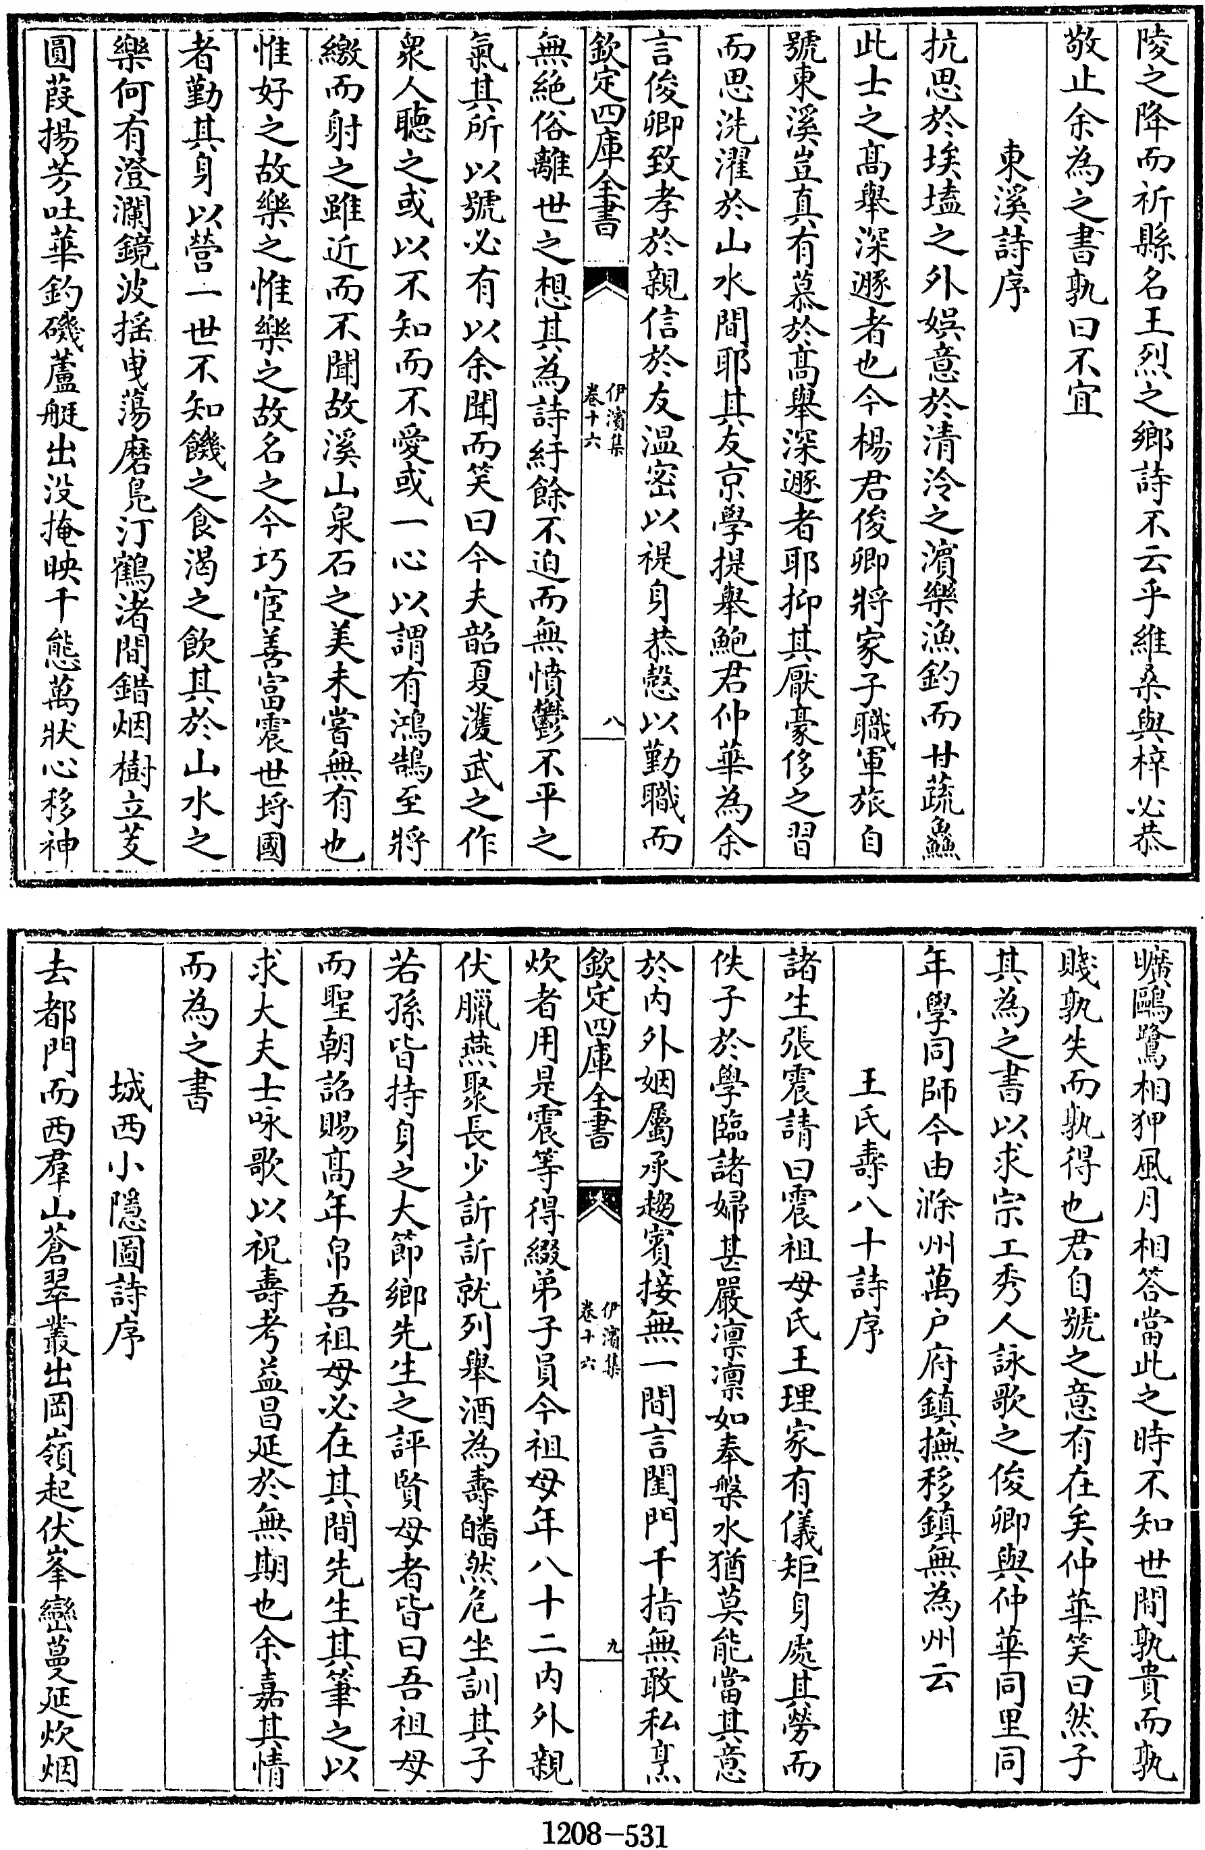 陵之降而祈縣名王烈之鄉詩不云乎維桑與梓必恭
敬止余為之書孰曰不宜
東溪詩序
抗思於埃壒之外娛意於清泠之濵樂漁釣而甘蔬鱻
此士之高舉深遯者也今楊君俊卿將家子職軍旅自
號東溪豈真有慕於高舉深遯者耶抑其厭豪侈之習
而思洗濯於山水間耶其友京學提舉鮑君仲華為余
言俊卿致孝於親信於友溫密以禔身恭慤以勤職而
欽定四庫全書
伊濵集
卷十六
八
無絶俗離世之想其為詩紆餘不迫而無憤鬱不平之
氣其所以號必有以余聞而笑曰今夫韶夏濩武之作
衆人聽之或以不知而不愛或一心以謂有鴻鵠至將
繳而射之雖近而不聞故溪山泉石之美未嘗無有也
惟好之故樂之惟樂之故名之今巧宦善富震世埓國
者勤其身以營一世不知饑之食渴之飲其於山水之
樂何有澄瀾鏡波摇曳蕩磨鳬汀鶴渚間錯烟樹立芰
圓葭揚芳吐華釣磯蘆艇出没掩映千態萬狀心移神
曠鷗鷺相狎風月相答當此之時不知世間孰貴而孰
賤孰失而孰得也君自號之意有在矣仲華笑曰然子
其為之書以求宗工秀人詠歌之俊卿與仲華同里同
年學同師今由滁州萬户府鎮撫移鎮無為州云
王氏壽八十詩序
諸生張震請曰震祖母氏王理家有儀矩身處其勞而
佚子於學臨諸婦甚嚴凛凛如奉槃水猶莫能當其意
於内外姻屬承趨賓接無一間言閨門千指無敢私烹
欽定四庫全書
伊濵集
卷十六
九
炊者用是震等得綴弟子員今祖母年八十二内外親
伏臘燕聚長少訢訢就列舉酒為壽皤然危坐訓其子
若孫皆持身之大節鄉先生之評賢母者皆曰吾祖母
而聖朝詔賜高年帛吾祖母必在其間先生其筆之以
求大夫士咏歌以祝壽考益昌延於無期也余嘉其情
而為之書
城西小隱圖詩序
去都門而西羣山蒼翠叢出岡嶺起伏峯巒蔓延炊烟
1208-531